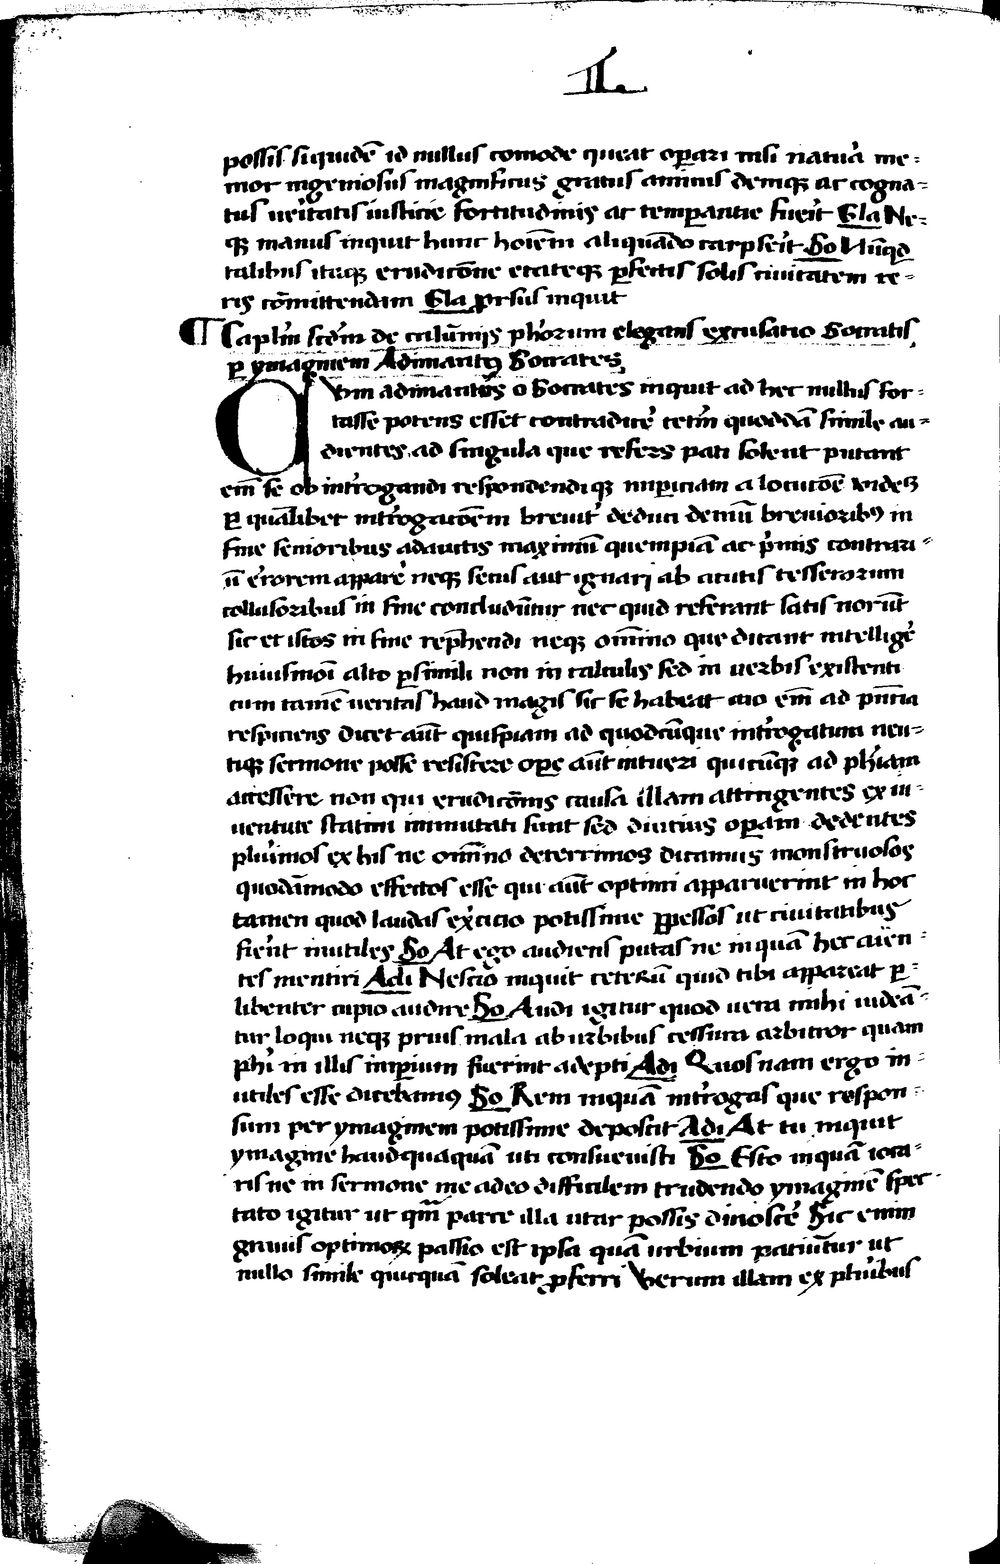 II.
possis siquidē id nullus comode queat oꝑari nisi natuᷓ me=
mor ingeniosus magnificus gratus amicus demqꝫ ac cogna=
tus ueritatis iusticie fortitudinis ac temꝑantie fuerit Gla Ne=
qꝫ manus inquit hunc hoīem aliquādo carpserit So Nūqd
talibus itaqꝫ erudicōne etateqꝫ ꝑfectis solis ciuitatem te=
ris cōmittendam Gla prsus inquit
¶ Caplm̄ scd̄m de calūmnijs phorum elegans excusatio Socratis
ꝑ ymaginem Adimantꝰ Socrates
Cvm adimantus o Socrates inquit ad hec nullus for=
tasse potens esset contradicē cetm̄ quoddā simile au=
dientes ad singula que refers pati solent putant
em̄ se ob intrōgandi respondendiqꝫ imꝑiciam a locucōe uideꝫ
ꝑ quālibet intrōgacōem breuit̓ deduci demū breuioribꝰ in
fine senioribus adauctis maximū quempiā ac p̓mis contrari=
ū errorem apparē neqꝫ secus aut ignari ab acutis tesserarum
collusoribus in fine concludūtur nec quid referant satis norūt
sic et istos in fine reph̄endi neqꝫ om̄ino que dicant intelligē
huiusmōi alio ꝑsimili non in calculis sed in uerbis existenti
cum tamē ueritas haud magis sic se habeat aio em̄ ad pn̄cia
respiciens dicet aūt quispiam ad quodcūque intrōgatum neu=
tiqꝫ sermone posse resistere oꝑe aūt intueri quicūqꝫ ad phiam
accessere non qui erudicōnis causa illam attingentes ex iu=
uentute statim immutati sunt sed diucius oꝑam dedentes
plurimos ex his ne om̄ino deterrimos dicamus monstruosos
quodāmodo effectos esse qui aūt optimi apparuerint in hoc
tamen quod laudas exercicio potissime ꝑpessos ut ciuitatibus
fierent inutiles So At ego audiens putas ne inquā hec aien=
tes mentiri Adi Nescio inquit ceterū quid tibi appareat ꝑ=
libenter cupio audire So Audi igitur quod uera mihi uideā=
tur loqui neqꝫ prius mala ab urbibus cessura arbitror quam
phi in illis imꝑium fuerint adepti Adi Quosnam ergo in=
utiles esse dicebamꝰ So Rem inquā intrōgas que respon=
sum per ymaginem potissime deposcit Adi At tu inquit
ymagine haudquaquā uti consueuisti So Esto inquā ioca=
ris ne in sermone me adeo difficilem trudendo ymaginē spec=
tato igitur ut qm̄ parte illa utar possis dinoscē Sic enim
grauis optimoꝝ passio est ipsa quā urbium paciūtur ut
nullo simile quicquā soleat ꝓferri Verum illam ex pluribus